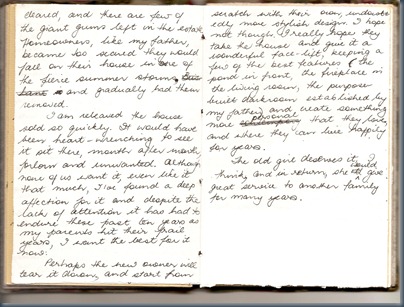 cleared, and there are few of
the giant gums left in the estate
homeowners, like my father,
became so scared they would
fall on their house in one of
the fierce summer storms,
and gradually had them
removed.
I am released the house
sold so quickly. It would have
been heart-wrenching to see
it sit there, month after month
forlorn and unwanted. Although
none of us want it, even like it
that much, I've found a deep
affection for it and despite the
lack of attention it has had to
endure these past ten years as
my parents hit their frail
years, I want the best for it
now.
Perhaps the new owner will
tear it down, and start from
scratch with their own, undoubt
edly more stylish design. I hope
not though. I really hope they
take the house and give it a
wonderful face-lift, keeping a
few of the best features (the
pond in front, the fireplace in
the living room, the purpose
built darkroom established by
my father) and create something
more personal that they love
and where they can live happily
for years.
The old girl deserves it, I
think, and in return, she would
great service to another family
for many years.